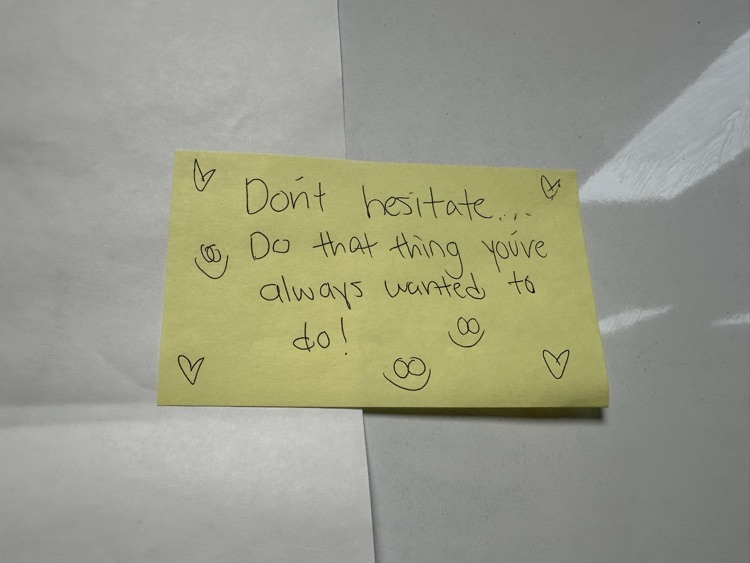 Don't hesitate...
Do that thing you've
always wanted to
do!